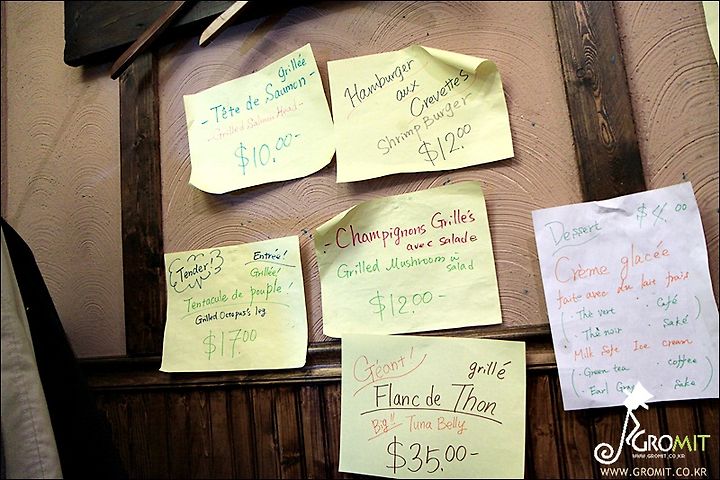 grillée
- Tête de Saumon -
- Grilled Salmon Head -
$10.00-
Hamburger
aux
Crevettes
Shrimp Burger
$12.00
- Champignons Grillés
avec salade
Grilled Mushroom w/
salad
$12.00-
Tender!
Entrée!
Grillée!
Tentacule de pouple!
Grilled Octopus's leg
$17.00
Géant! grillé
Flanc de Thon
Big!! Tuna Belly
$35.00-
Dessert $4.00
Crème glacée
faite avec du lait frais
· Thé vert · Café
· Thé noir · Saké
Milk Soft Ice cream
· Green tea · coffee
· Earl Gray · Sake
GROMIT
WWW.GROMIT.CO.KR
WWW.GROMIT.CO.KR